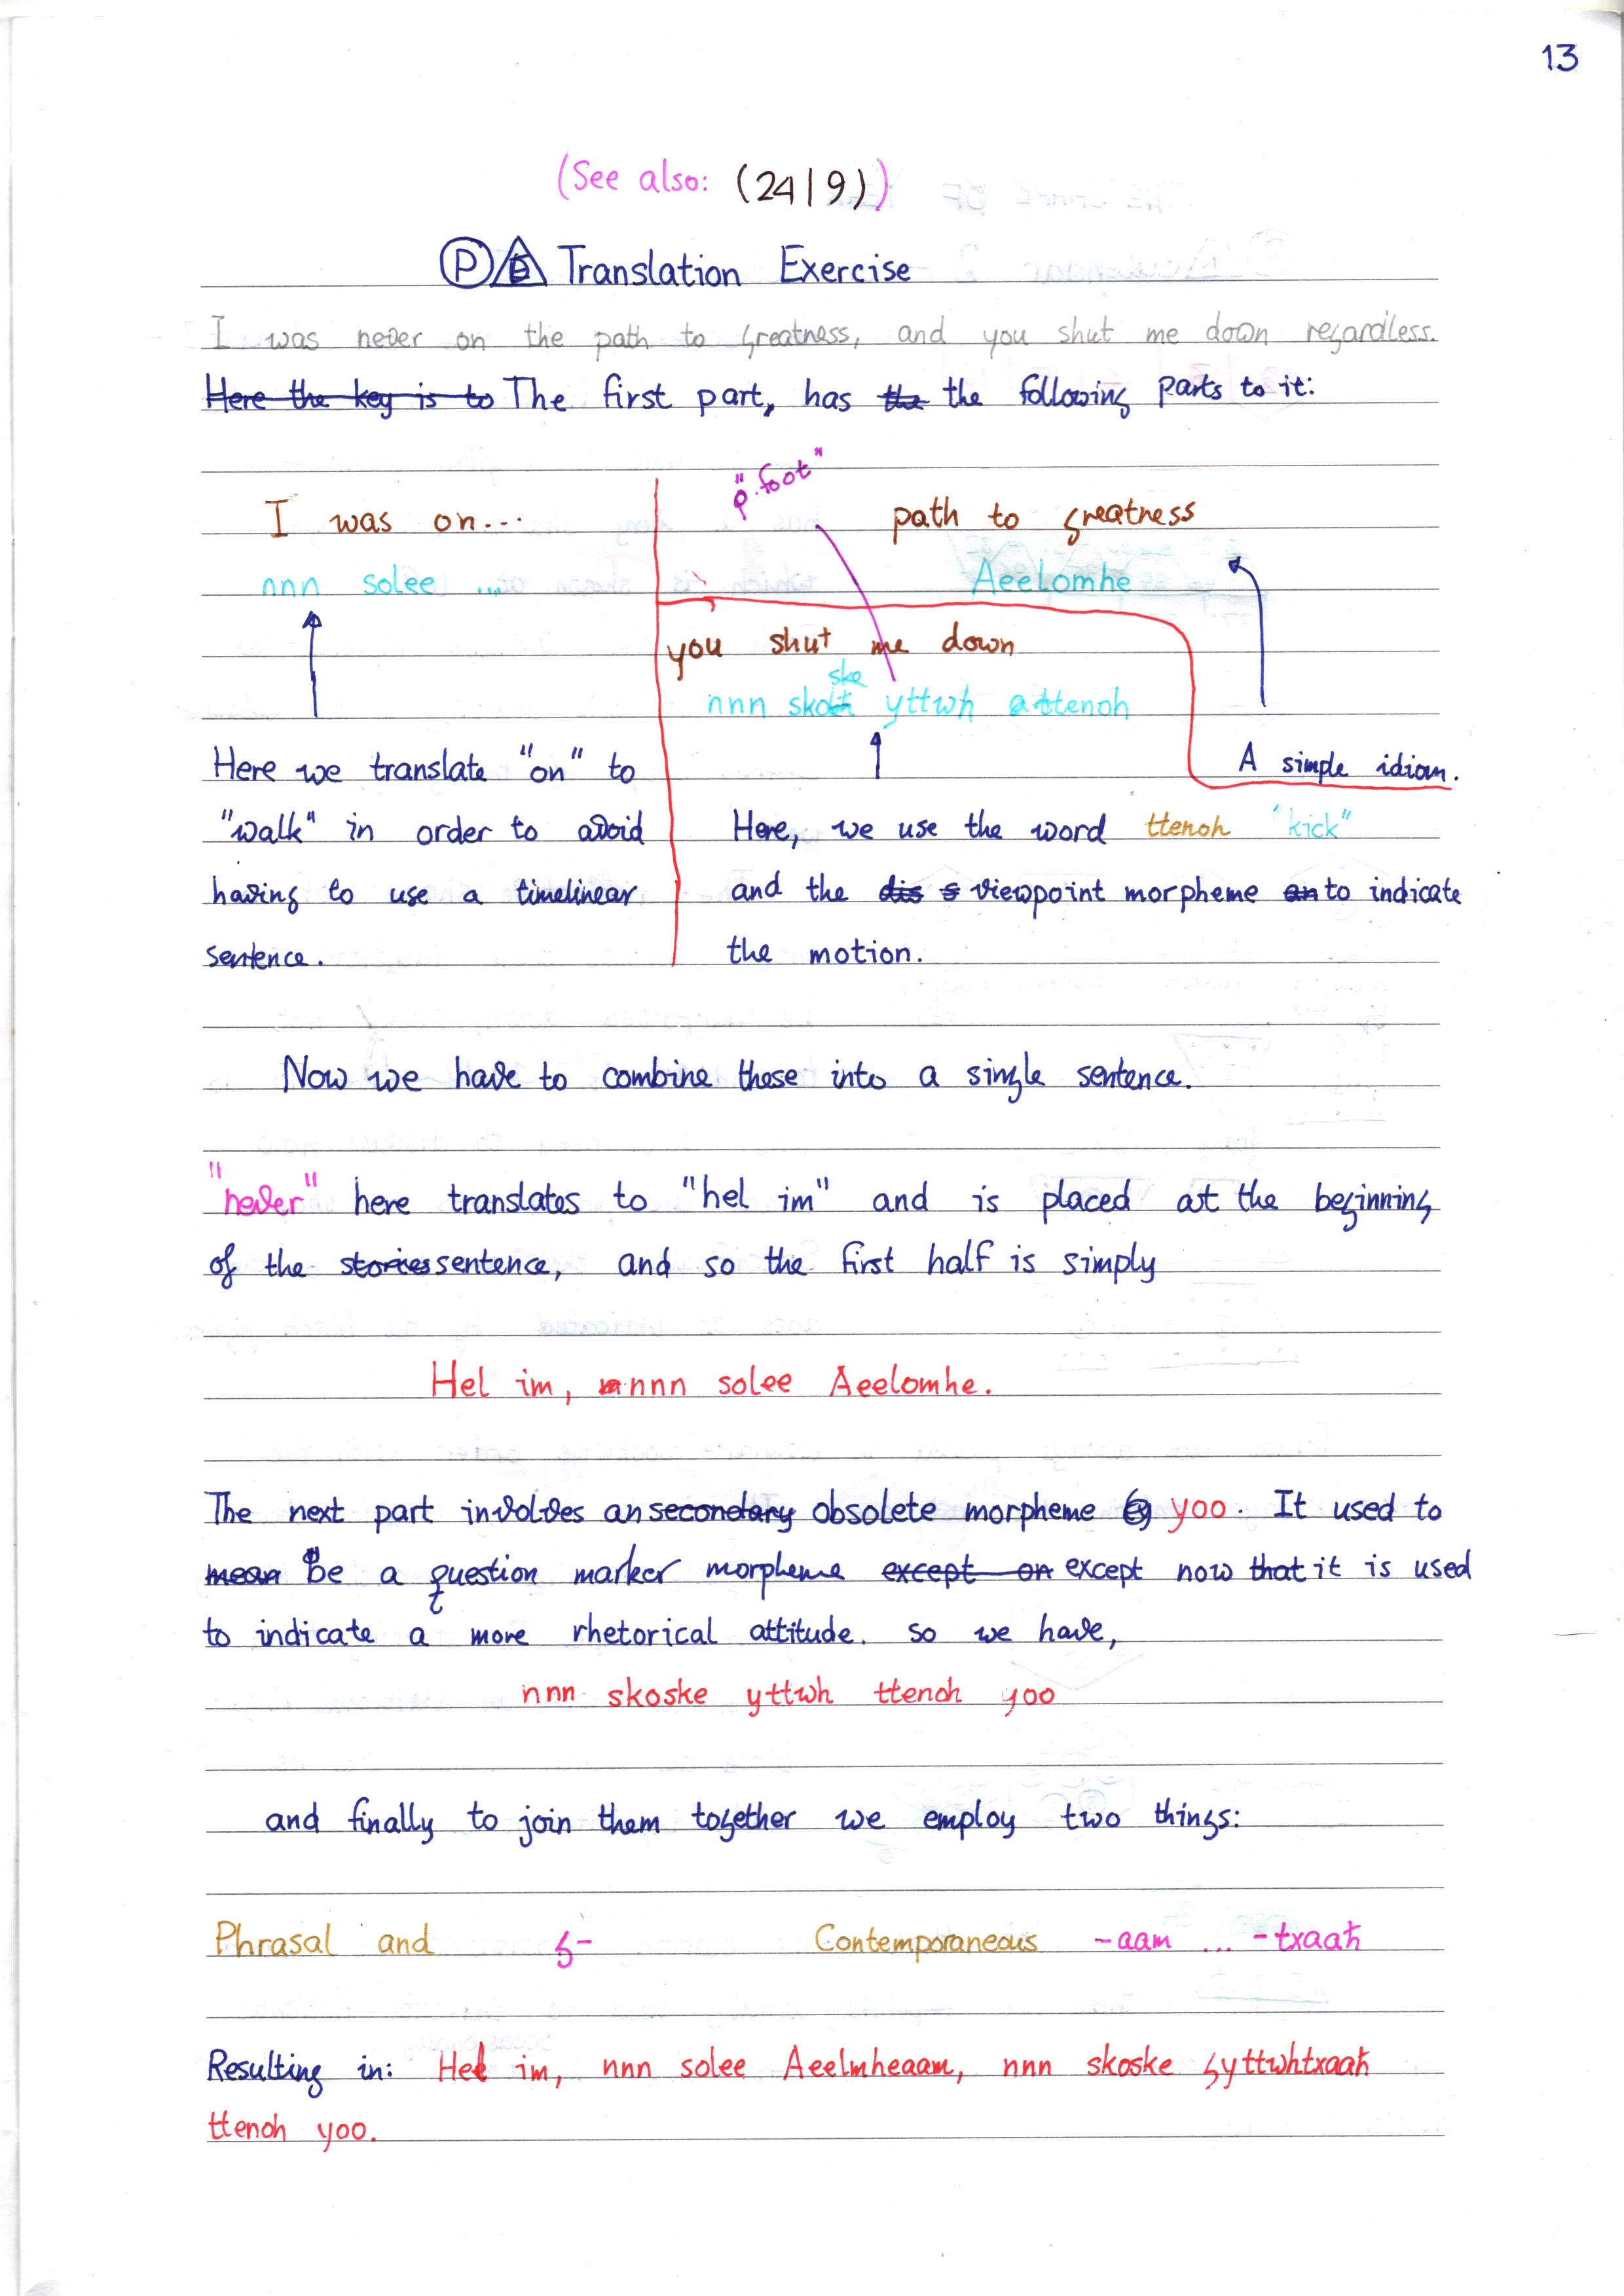 13
(See also: (24|9))
P B Translation Exercise
I was never on the path to greatness, and you shut me down regardless.
Here the key is to The first part, has the the following parts to it:
"p.foot"
I was on...
nnn solee ...
path to greatness
Aeelomhe
you shut me down
nnn skoske yttwħ attenoh
Here we translate "on" to
"walk" in order to avoid
having to use a timelinear
sentence.
A simple idiom.
Here, we use the word ttenoh "kick"
and the dis s viewpoint morpheme an to indicate
the motion.
Now we have to combine these into a single sentence.
"never" here translates to "hel im" and is placed at the beginning
of the stories sentence, and so the first half is simply
Hel im, nnn solee Aeelomhe.
The next part involves an secondary obsolete morpheme yoo. It used to
mean be a question marker morpheme except on except now that it is used
to indicate a more rhetorical attitude. so we have,
nnn skoske yttwh ttenoh yoo
and finally to join them together we employ two things:
Phrasal and ɕ- Contemporaneous -aam ... -txaaħ
Resulting in: Hel im, nnn solee Aeelmheaam, nnn skoske ɕyttwhtxaaħ
ttenoh yoo.